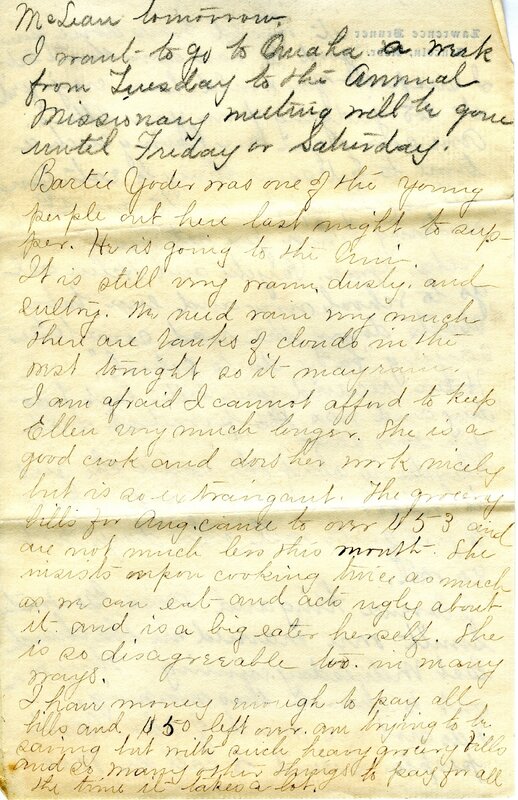 McLean tomorrow.
I want to go to Omaha a week
from Tuesday to the Annual
Missionary meeting will be gone
until Friday or Saturday.
Bartie Yoder was one of the young
people out here last night to sup-
per. He is going to the Uni.
It is still very warm, dusty, and
sultry. We need rain very much
There are banks of clouds in the
west tonight so it may rain.
I am afraid I cannot afford to keep
Ellen very much longer. She is a
good cook and does her work nicely
but is so extravagant. The grocery
bills for Aug. came to over $53 and
are not much less this month. She
insists upon cooking twice as much
as we can eat and acts ugly about
it and is a big eater herself. She
is so disagreeable too in many
ways.
I have money enough to pay all
bills and $50 left over. am trying to be
saving but with such heavy grocery bills
and so many other things to pay for all
the time it takes a lot.